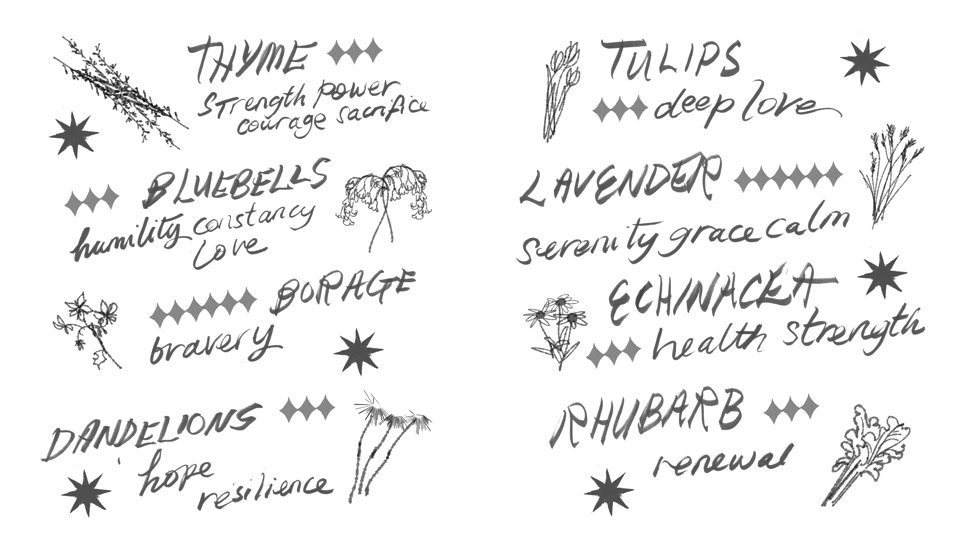 THYME
strength power
courage sacrifice
BLUEBELLS
humility constancy
love
BORAGE
bravery
DANDELIONS
hope
resilience
TULIPS
deep love
LAVENDER
serenity grace calm
ECHINACEA
health strength
RHUBARB
renewal